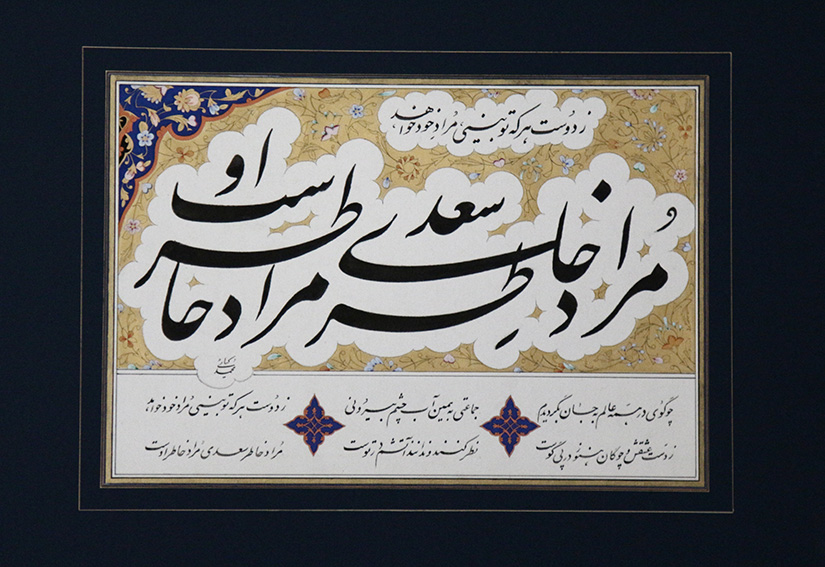 ز دوست هر که تو بینی مراد خود خواهد
مراد خاطر سعدی مراد خاطر اوست
چو گوی در همه عالم به جان بگردیدم
ز دست عشقش و چوگان هنوز در پی گوست
جماعتی به همین آب چشم بیرونی
نظر کنند و ندانند آتشم در توست
ز دوست هر که تو بینی مراد خود خواهد
مراد خاطر سعدی مراد خاطر اوست